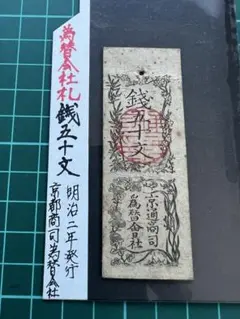 為替会社札
銭五十文
明治二年発行
京都商司為替会社
銭五十文
京通商司
為替会社